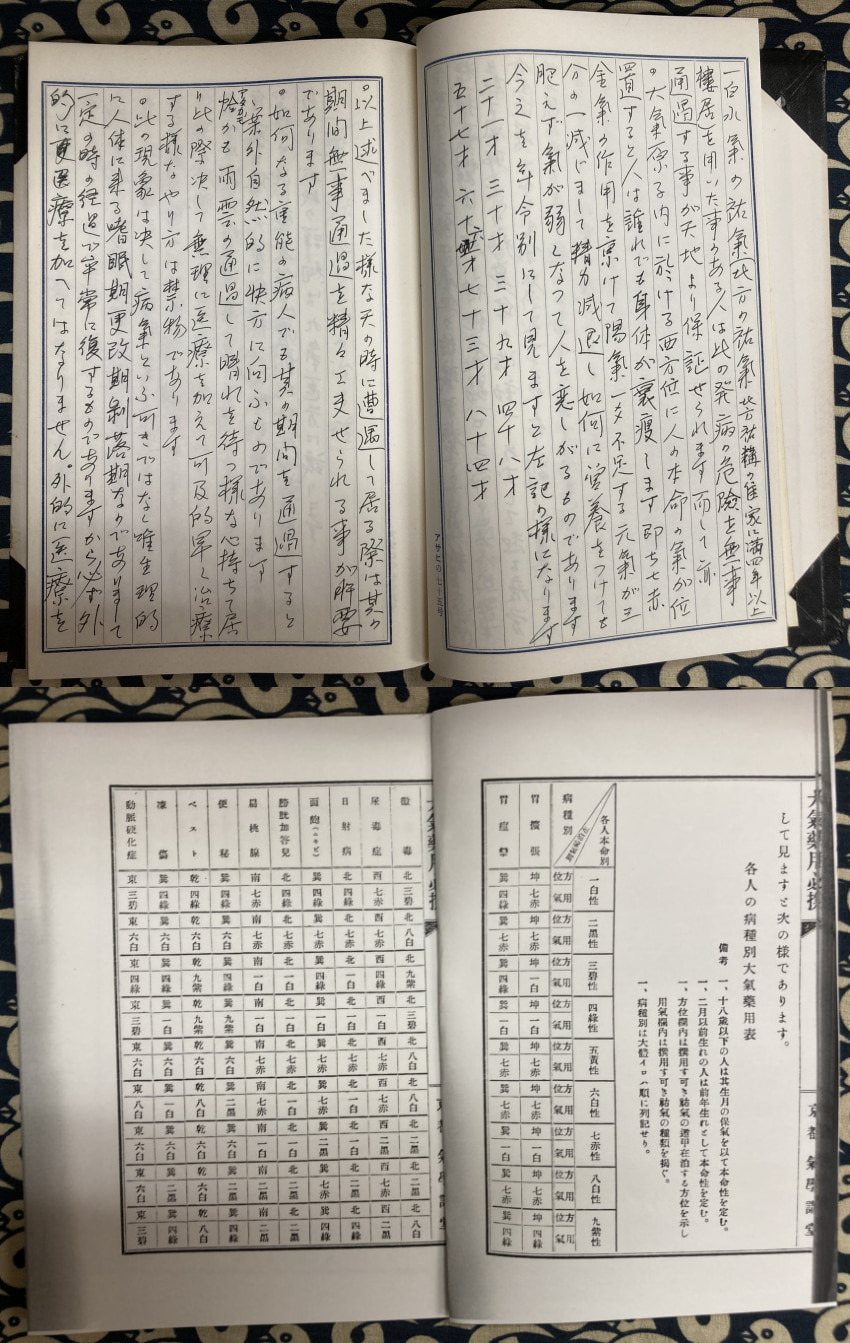 一白水氣の祐氣北方の祐氣北方祐構の住家に満四年以上
棲居を用いた事のある人は此の発病の危險を無事
通過する事が天地より保証せられます而して亦
○大氣原子内に於ける西方位に人の本命の氣が位
置すると人は誰れでも身体が衰瘦します即ち七赤
金氣の作用を亰けて陽氣一々不足する元氣が三
分の一減じまして精力減退し如何に営養をつけても
肥えず氣が弱くなつて人を恋しがるものであります
今之を年令別にして見ますと左記の様になります
二十一才 三十才 三十九才 四十八才
五十七才 六十六才 七十三才 八十四才
アサヒの七十五号
○以上述べました様な天の時に遭遇して居る際は其の
期間無事通過を精々工夫せられる事が肝要
であります
○如何なる重態の病人でも其の期間を通過すると
案外自然的に快方に向ふものであります
恰かも雨雲の通過して晴れを待つ様な心持ちで居
り此の際決して無理に医療を加えて可及的早く治療
する様なやり方は禁物であります
○此の現象は決して病氣といふ可きではなく唯生理的
に人体に来る嗜眠期更改期剝落期なのでありまして
一定の時の経過で平常に復するものでありますから必ず外
的に医療を加へてはなりません。外的に医療を
大氣藥用必携
京都 氣學講堂
して見ますと次の樣であります。
各人の病種別大氣藥用表
備考
一、十八歲以下の人は其生月の保氣を以て本命性を定む。
一、二月以前生れの人は前年生れとして本命性を定む。
一、方位欄內は撰用す可き祐氣の遁甲在泊する方位を示し
用氣欄內は撰用す可き祐氣の種類を揭ぐ。
一、病種別は大體イロハ順に列記せり。
各人本命別
病種別
一白性 二黑性 三碧性 四綠性 五黃性 六白性 七赤性 八白性 九紫性
方位 用氣 方位 用氣 方位 用氣 方位 用氣 方位 用氣 方位 用氣 方位 用氣 方位 用氣 方位 用氣
胃擴張 坤 七赤 坤 七赤 坤 一白 坤 一白 坤 七赤 坤 七赤 坤 一白 坤 七赤 坤 四綠
胃痙攣 巽 四綠 巽 七赤 巽 四綠 巽 一白 巽 七赤 巽 七赤 巽 一白 巽 七赤 巽 四綠
黴毒 北 三碧 北 八白 北 九紫 北 三碧 北 八白 北 八白 北 二黑 北 二黑 北 八白
尿毒症 西 七赤 西 七赤 西 四綠 西 一白 西 七赤 西 七赤 西 二黑 西 七赤 西 二黑
日射病 北 四綠 北 七赤 北 一白 北 一白 北 七赤 北 七赤 北 一白 北 二黑 北 四綠
面皰(ニキビ) 巽 四綠 巽 七赤 巽 四綠 巽 一白 巽 七赤 巽 一白 巽 二黑 巽 七赤 巽 四綠
膀胱加答兒 北 四綠 北 七赤 北 一白 北 一白 北 七赤 北 一白 北 二黑 北 二黑 北 二黑
扁桃腺 南 七赤 南 七赤 南 一白 南 一白 南 七赤 南 七赤 南 一白 南 二黑 南 二黑
便秘 巽 四綠 巽 六白 巽 四綠 巽 九紫 巽 六白 巽 二黑 巽 六白 巽 二黑 巽 四綠
ペスト 乾 四綠 乾 六白 乾 九紫 乾 九紫 乾 六白 乾 八白 乾 六白 乾 六白 乾 八白
凍傷 巽 四綠 巽 六白 巽 四綠 巽 一白 巽 六白 巽 一白 巽 六白 巽 二黑 巽 四綠
動脈硬化症 東 三碧 東 六白 東 四綠 東 三碧 東 六白 東 八白 東 六白 東 六白 東 三碧